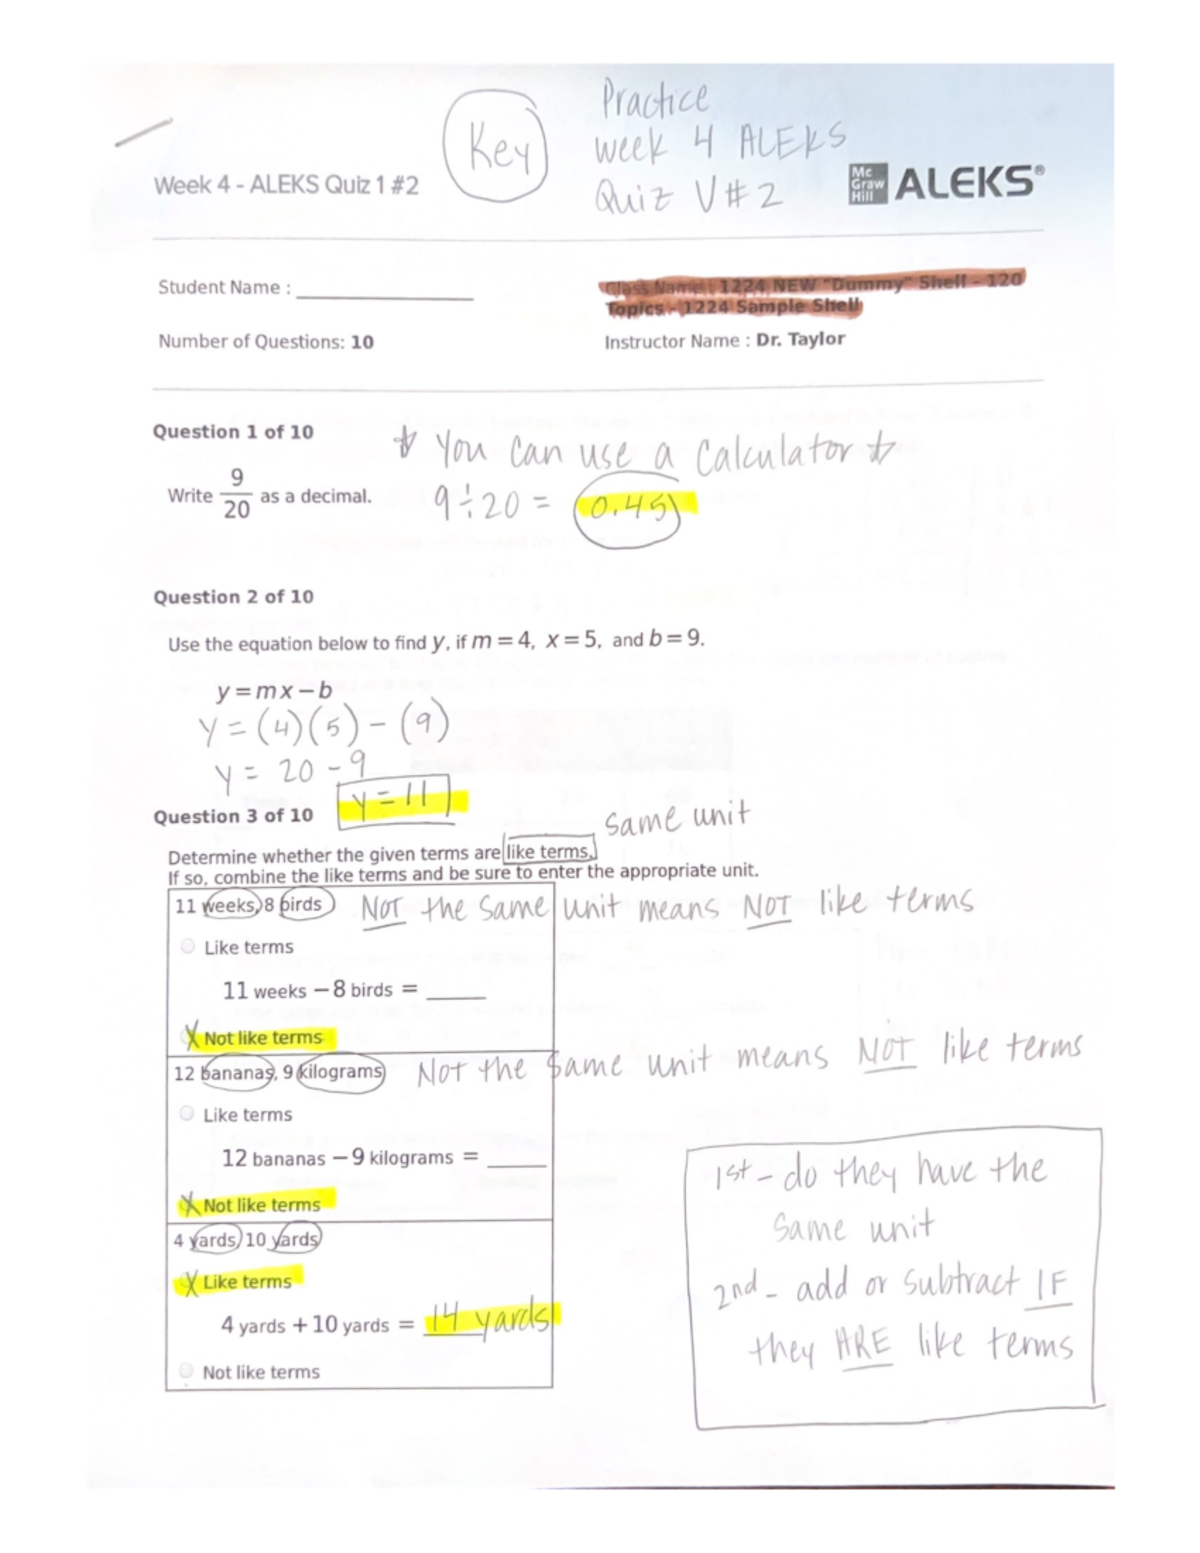 Practice
Key
week 4 ALEKS
Week 4 - ALEKS Quiz 1 #2
Quiz V#2
Mc Graw Hill ALEKS®
Student Name : 
Class Name : 1224 NEW "Dummy" Shell - 120
Topics - 1224 Sample Shell
Number of Questions: 10
Instructor Name : Dr. Taylor
Question 1 of 10
☆ You can use a calculator ☆
Write 9/20 as a decimal.
9÷20 = 0.45
Question 2 of 10
Use the equation below to find y, if m = 4, x = 5, and b = 9.
y = mx − b
y = (4)(5) - (9)
y = 20 - 9
y = 11
Question 3 of 10
same unit
Determine whether the given terms are like terms.
If so, combine the like terms and be sure to enter the appropriate unit.
11 weeks, 8 birds
NOT the same unit means NOT like terms
Like terms
11 weeks − 8 birds = ____
X Not like terms
12 bananas, 9 kilograms
NOT the same unit means NOT like terms
Like terms
12 bananas − 9 kilograms = ____
X Not like terms
4 yards, 10 yards
X Like terms
4 yards + 10 yards = 14 yards
Not like terms
1st - do they have the
same unit
2nd - add or subtract IF
they ARE like terms